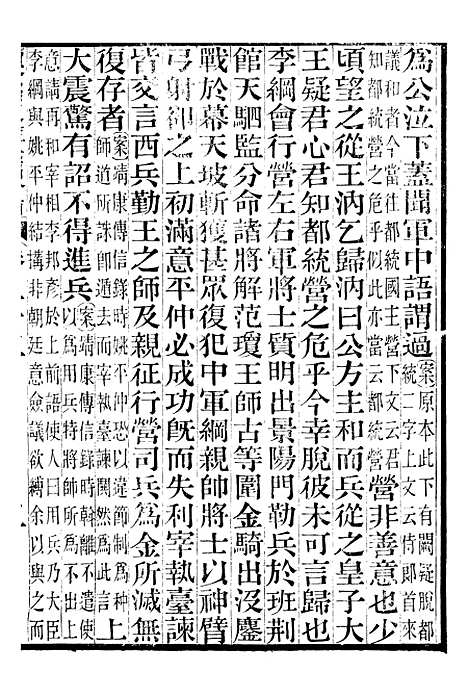 爲公泣下蓋聞軍中語謂過案原本此下有闕疑脫都統二字上文云侍郎首來
議和者今當往都統國王營下文云君知都統營之危乎似此亦當云都統營營非善意也少
頃望之從王汭乞歸汭曰公方主和而兵從之皇子大
王疑君心君知都統營之危乎今幸脫彼未可言歸也
李綱會行營左右軍將士質明出景陽門勒兵於班荆
館天駟監分命諸將解范瓊王師古等圍金騎出沒鏖
戰於幕天坡斬獲甚眾復犯中軍綱親師將士以神臂
弓射卻之上初滿意平仲必成功旣而失利宰執臺諫
皆交言西兵勤王之師及親征行營司兵爲金所滅無
復存者案靖康傳信錄時姚平仲恐以違節制爲种師道所誅卽遁去而宰執臺諫鬨然爲此言上
大震驚有詔不得進兵案靖康傳信錄時斡離不遣使以爲用兵特將師所爲不出上
意請再和宰相李邦彥於上前語使人曰用兵乃大臣李綱與姚平仲結搆非朝廷意僉議欲縛余以與之而